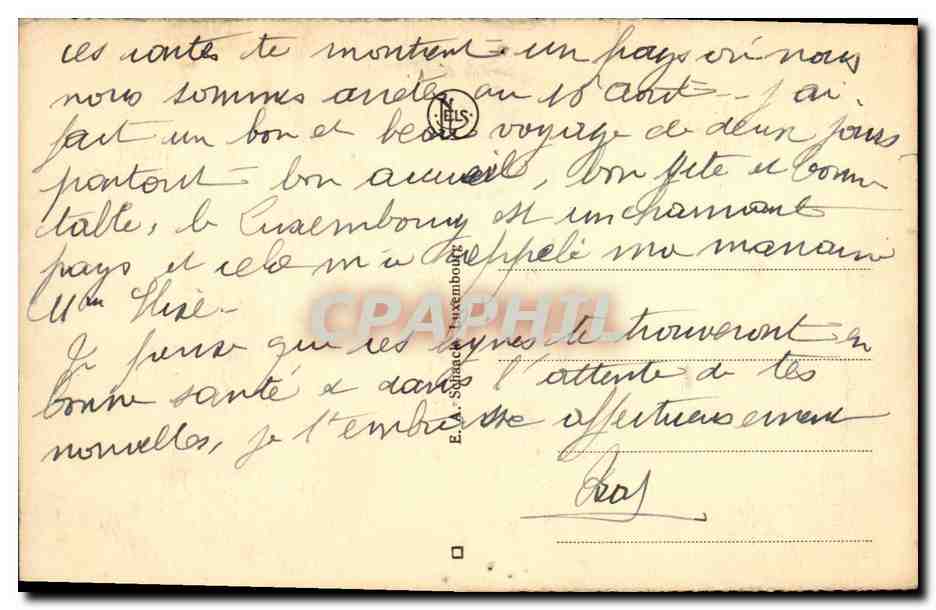 ces cartes te montrent un pays où nous
nous sommes arretés au 15 Aout - j'ai
fait un bon et beau voyage de deux jours
partout bon accueil, bon gîte et bonne
table, le Luxembourg est un charmant
pays et cela m'a rappelé ma marraine
Mme
Je pense que ces lignes te trouveront en
bonne santé et dans l'attente de tes
nouvelles, je t'embrasse affectueusement
NELS
E. A. Schaack Luxembourg
CPAPHIL